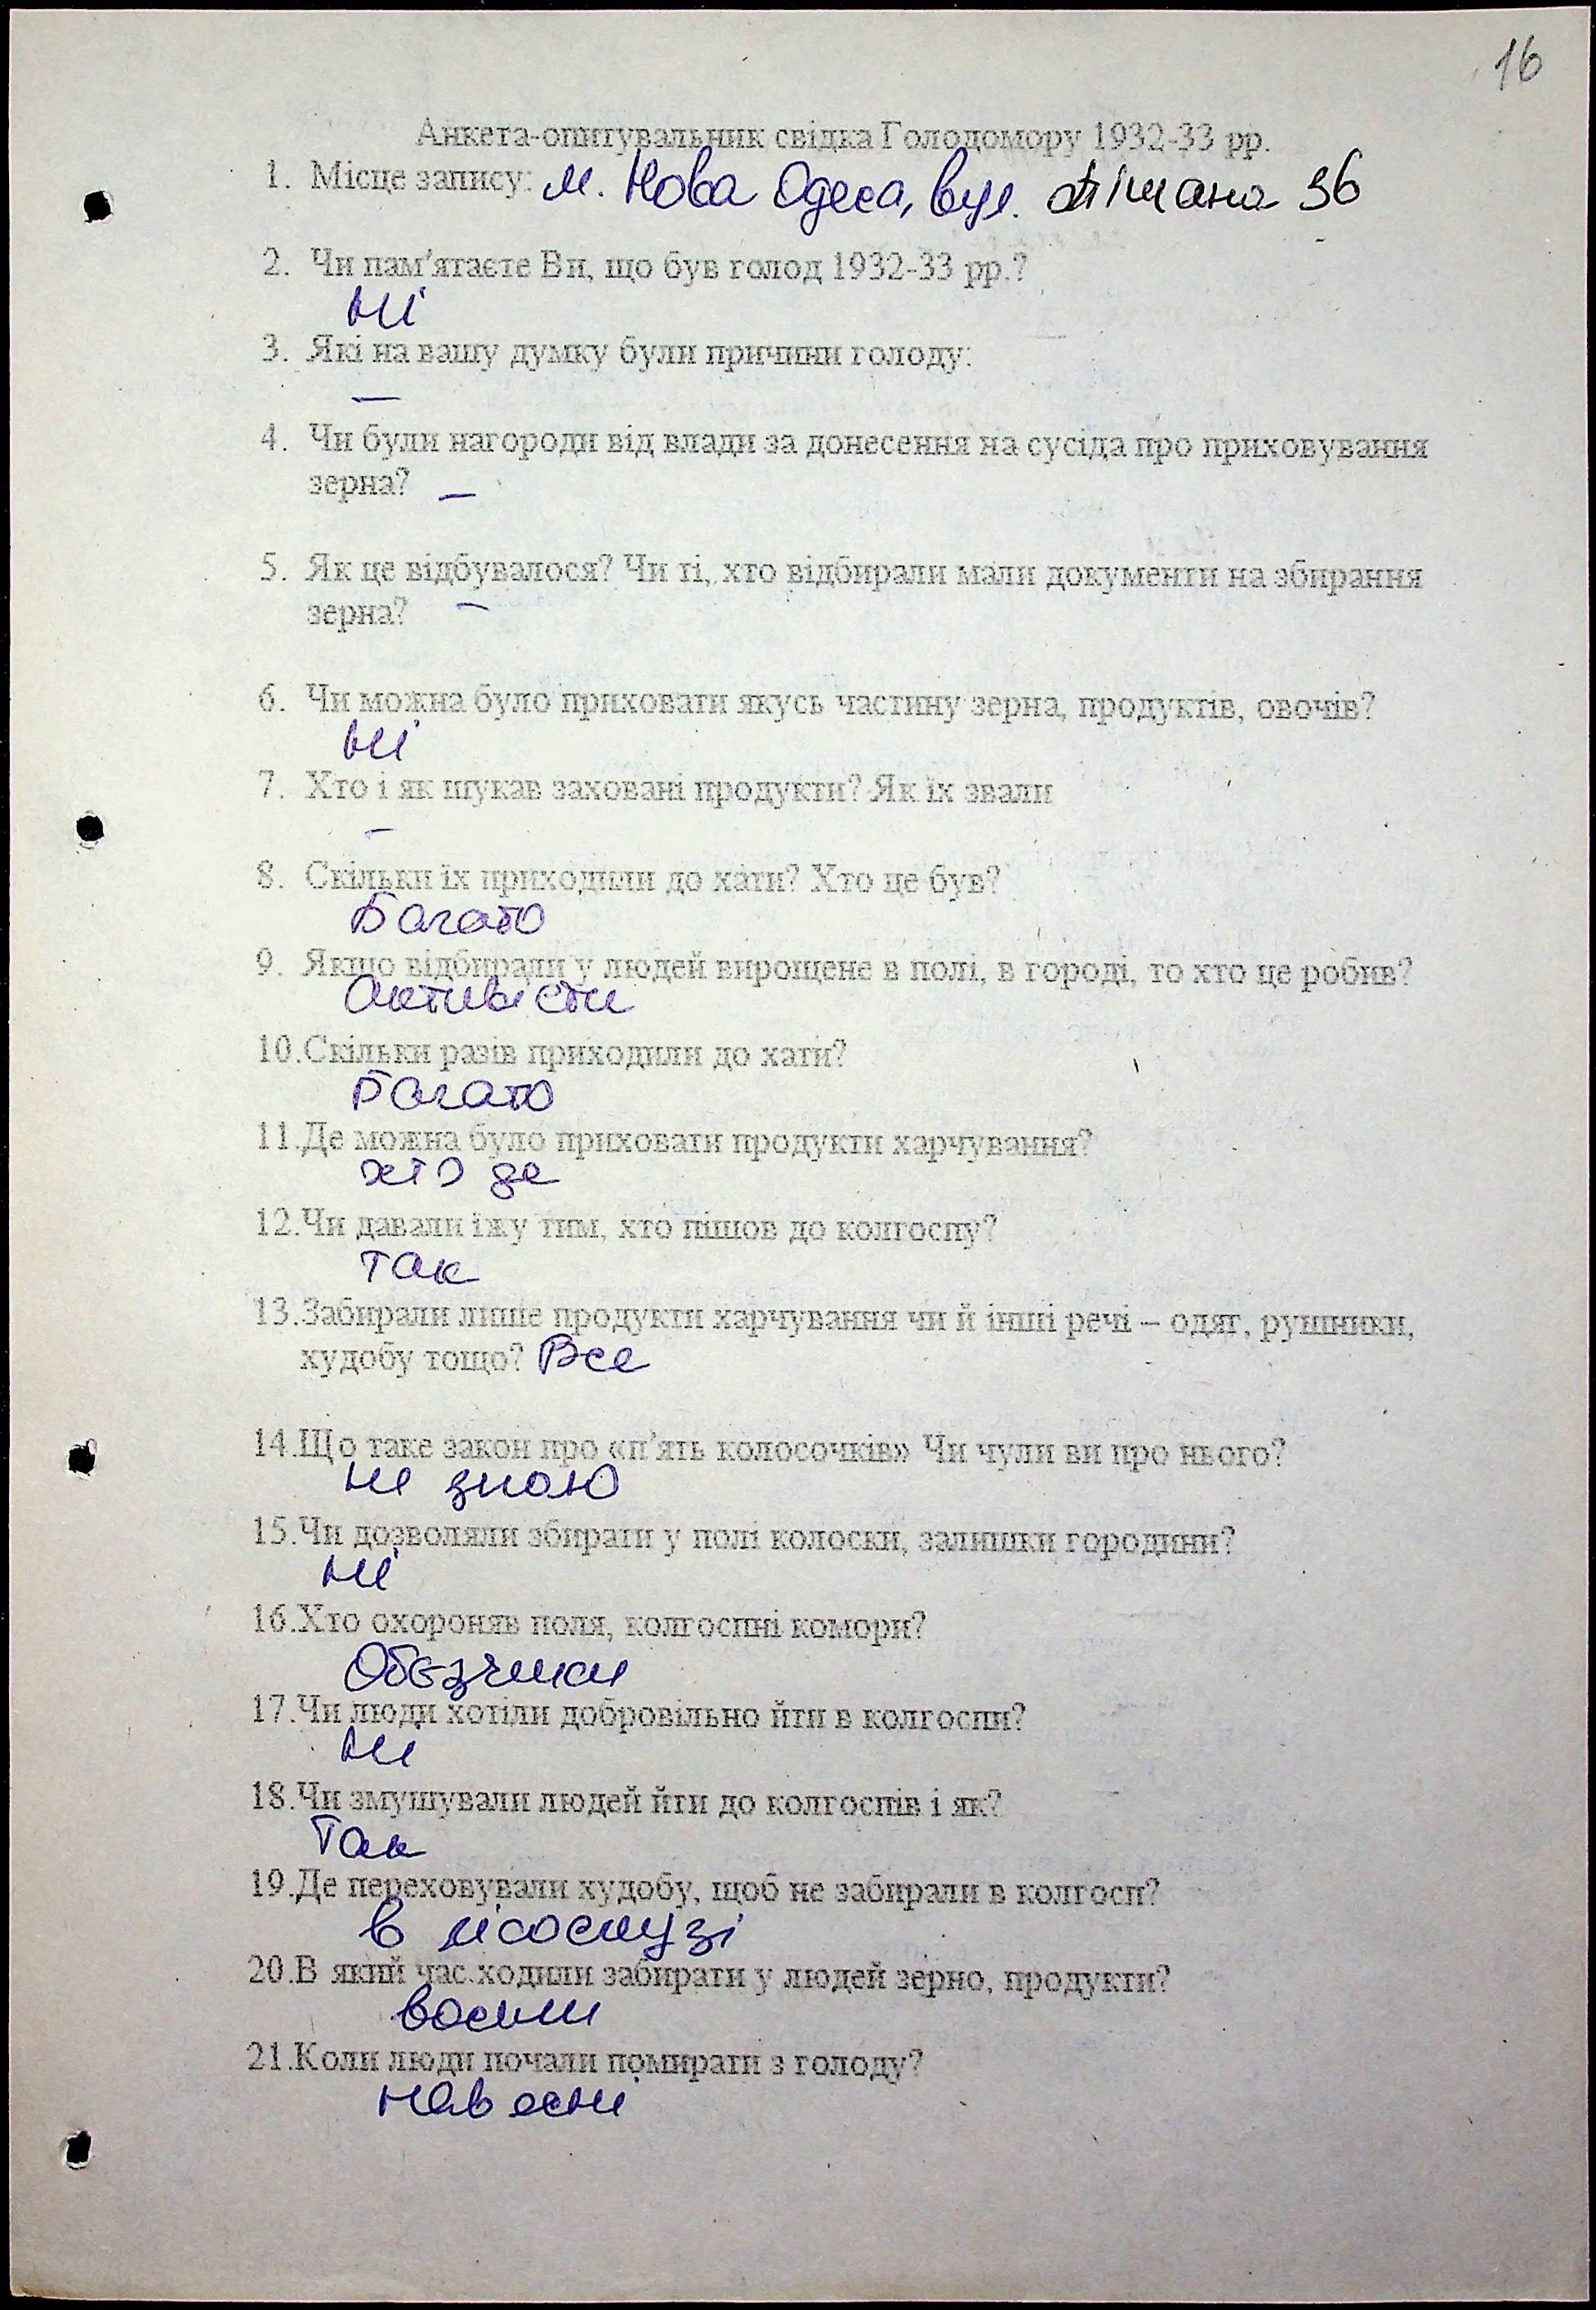 16
Анкета-опитувальник свідка Голодомору 1932-33 рр.
1. Місце запису: м. Нова Одеса, вул. 36
2. Чи пам'ятаєте Ви, що був голод 1932-33 рр.?
Ні
3. Які на вашу думку були причини голоду:
—
4. Чи були нагороди від влади за донесення на сусіда про приховування
зерна? —
5. Як це відбувалося? Чи ті, хто відбирали мали документи на збирання
зерна? —
6. Чи можна було приховати якусь частину зерна, продуктів, овочів?
Ні
7. Хто і як шукав заховані продукти? Як їх звали
—
8. Скільки їх приходили до хати? Хто це був?
Багато
9. Якщо відбирали у людей вирощене в полі, в городі, то хто це робив?
Активісти
10.Скільки разів приходили до хати?
Багато
11.Де можна було приховати продукти харчування?
хто де
12.Чи давали їжу тим, хто пішов до колгоспу?
так
13.Забирали лише продукти харчування чи й інші речі – одяг, рушники,
худобу тощо? Все
14.Що таке закон про «п'ять колосочків» Чи чули ви про нього?
не знаю
15.Чи дозволяли збирати у полі колоски, залишки городини?
ні
16.Хто охороняв поля, колгоспні комори?
Обєзчики
17.Чи люди хотіли добровільно йти в колгоспи?
Ні
18.Чи змушували людей йти до колгоспів і як?
Так
19.Де переховували худобу, щоб не забирали в колгосп?
в лісосмузі
20.В який час ходили забирати у людей зерно, продукти?
восени
21.Коли люди почали помирати з голоду?
навесні